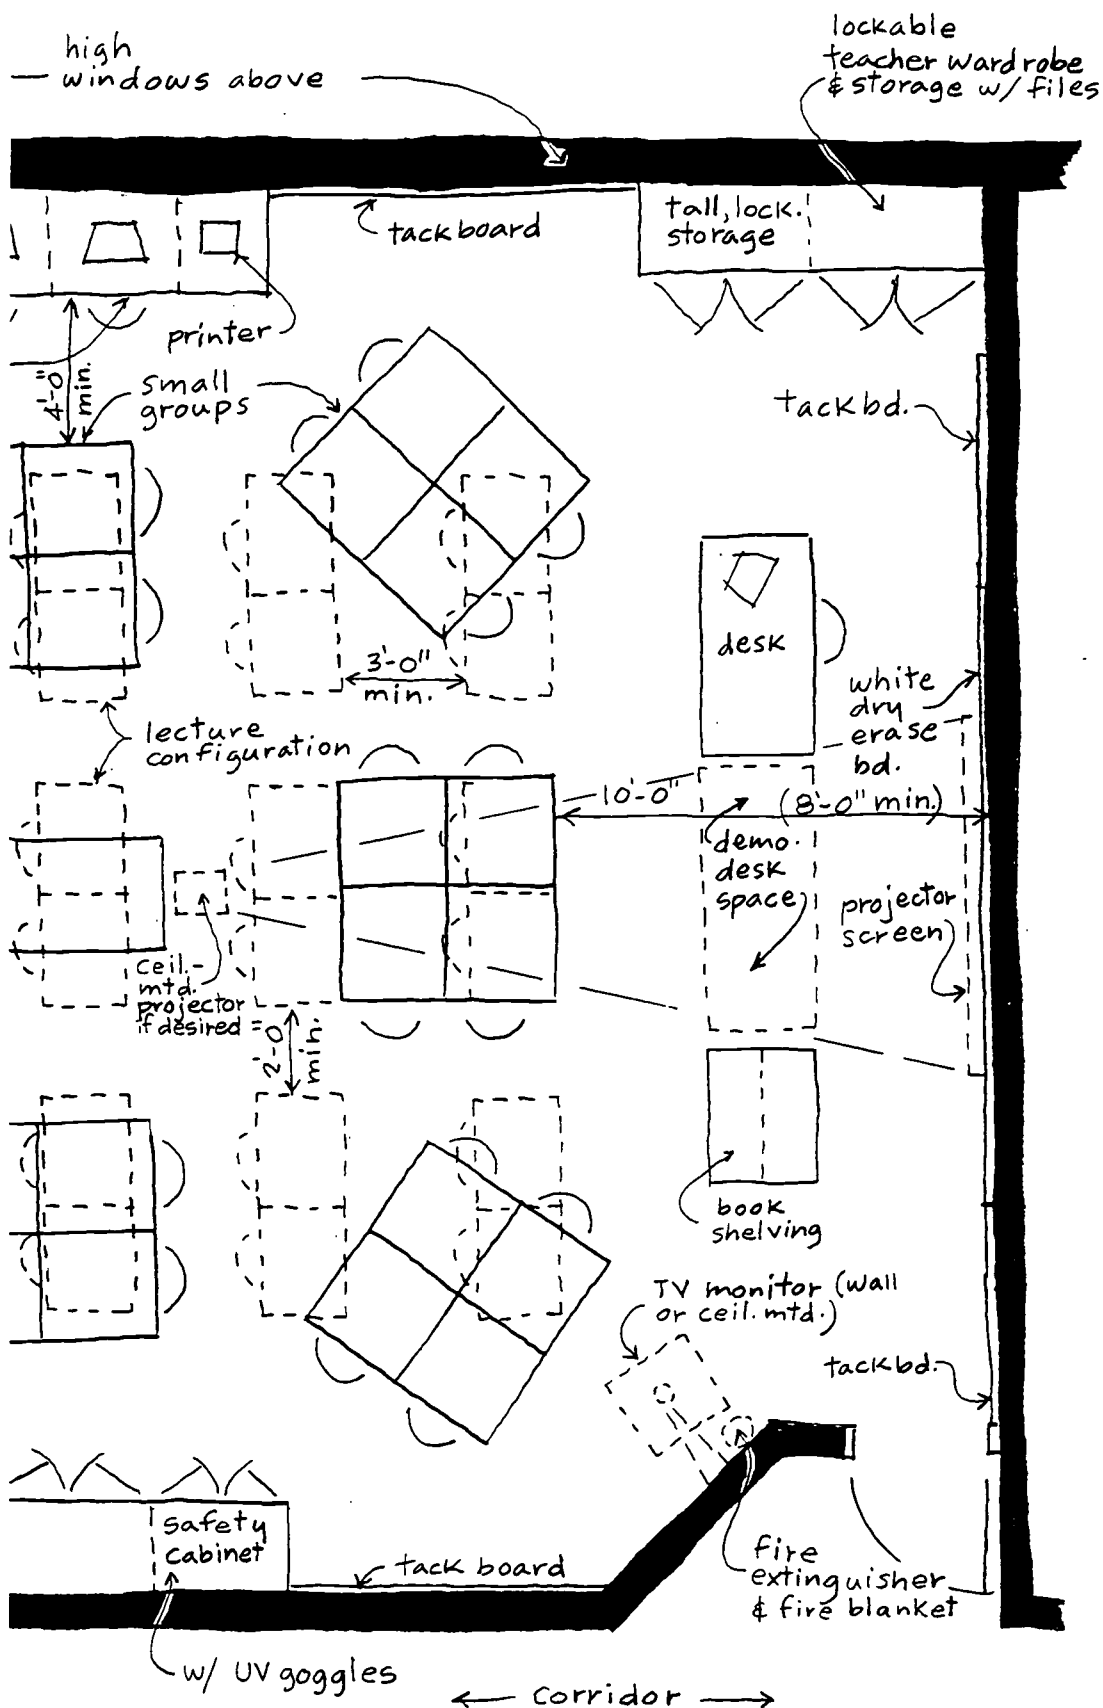 high
windows above
lockable
teacher wardrobe
& storage w/ files
tackboard
tall, lock.
storage
printer
4'-0"
min.
small
groups
tack bd.
desk
3'-0"
min.
white
dry
erase
bd.
lecture
configuration
10'-0"
(8'-0" min.)
demo.
desk
space
projector
screen
ceil.-
mtd.
projector
if desired
2'-0"
min.
book
shelving
TV monitor (wall
or ceil. mtd.)
tack bd.
safety
cabinet
tack board
fire
extinguisher
& fire blanket
w/ UV goggles
corridor